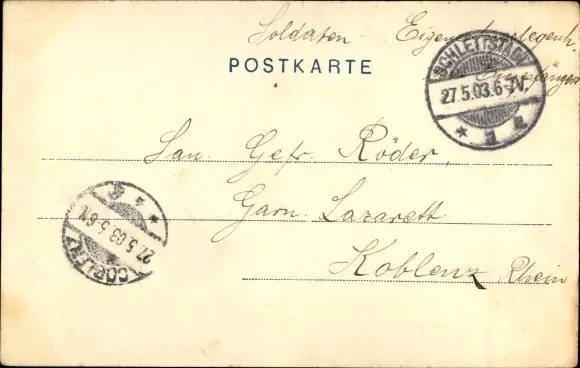 Soldaten - Eigen. Angelegenh.
d. Empfängers
POSTKARTE
SCHLETTSTADT
27.5.03.6-7V.
San. Gefr. Röder,
Garn. Lazarett
Koblenz Rhein
27.5.03 5-6N
COBLENZ